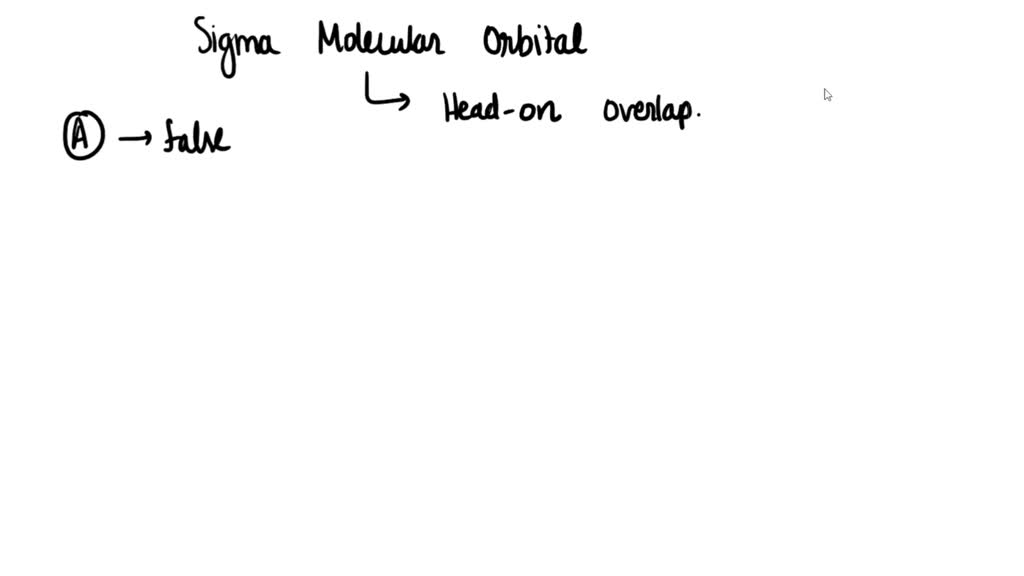 Sigma Molecular Orbital
↳ Head-on overlap.
Ⓐ → false